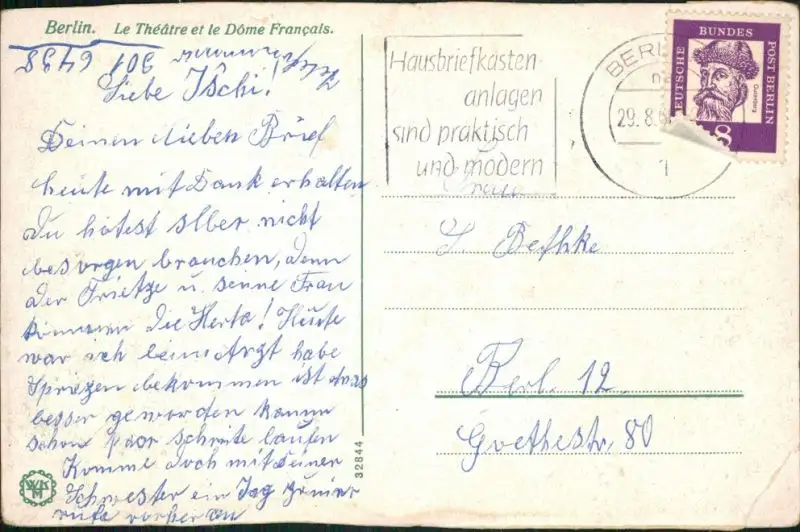 Berlin. Le Théâtre et le Dôme Français.
301 6438
Liebe Ischi!
Deinen lieben Brief
heute mit Dank erhalten
Du hätest slber nicht
besorgen brauchen, denn
der Frietze u. seine Frau
kömmen die Herta! Heute
war ich beim Arzt habe
Spriezen bekommen ist etwas
besser geworden kann
schon paar schrite laufen
Komme doch mit Deiner
Schwester ein Tag zu mir
rufe vorher an
32844
WKM
Hausbriefkasten-
anlagen
sind praktisch
und modern
BERLIN
29.8.6
1
DEUTSCHE BUNDES POST BERLIN
Gutenberg
8
Frau
Bethke
Berl. 12
Goethestr, 80